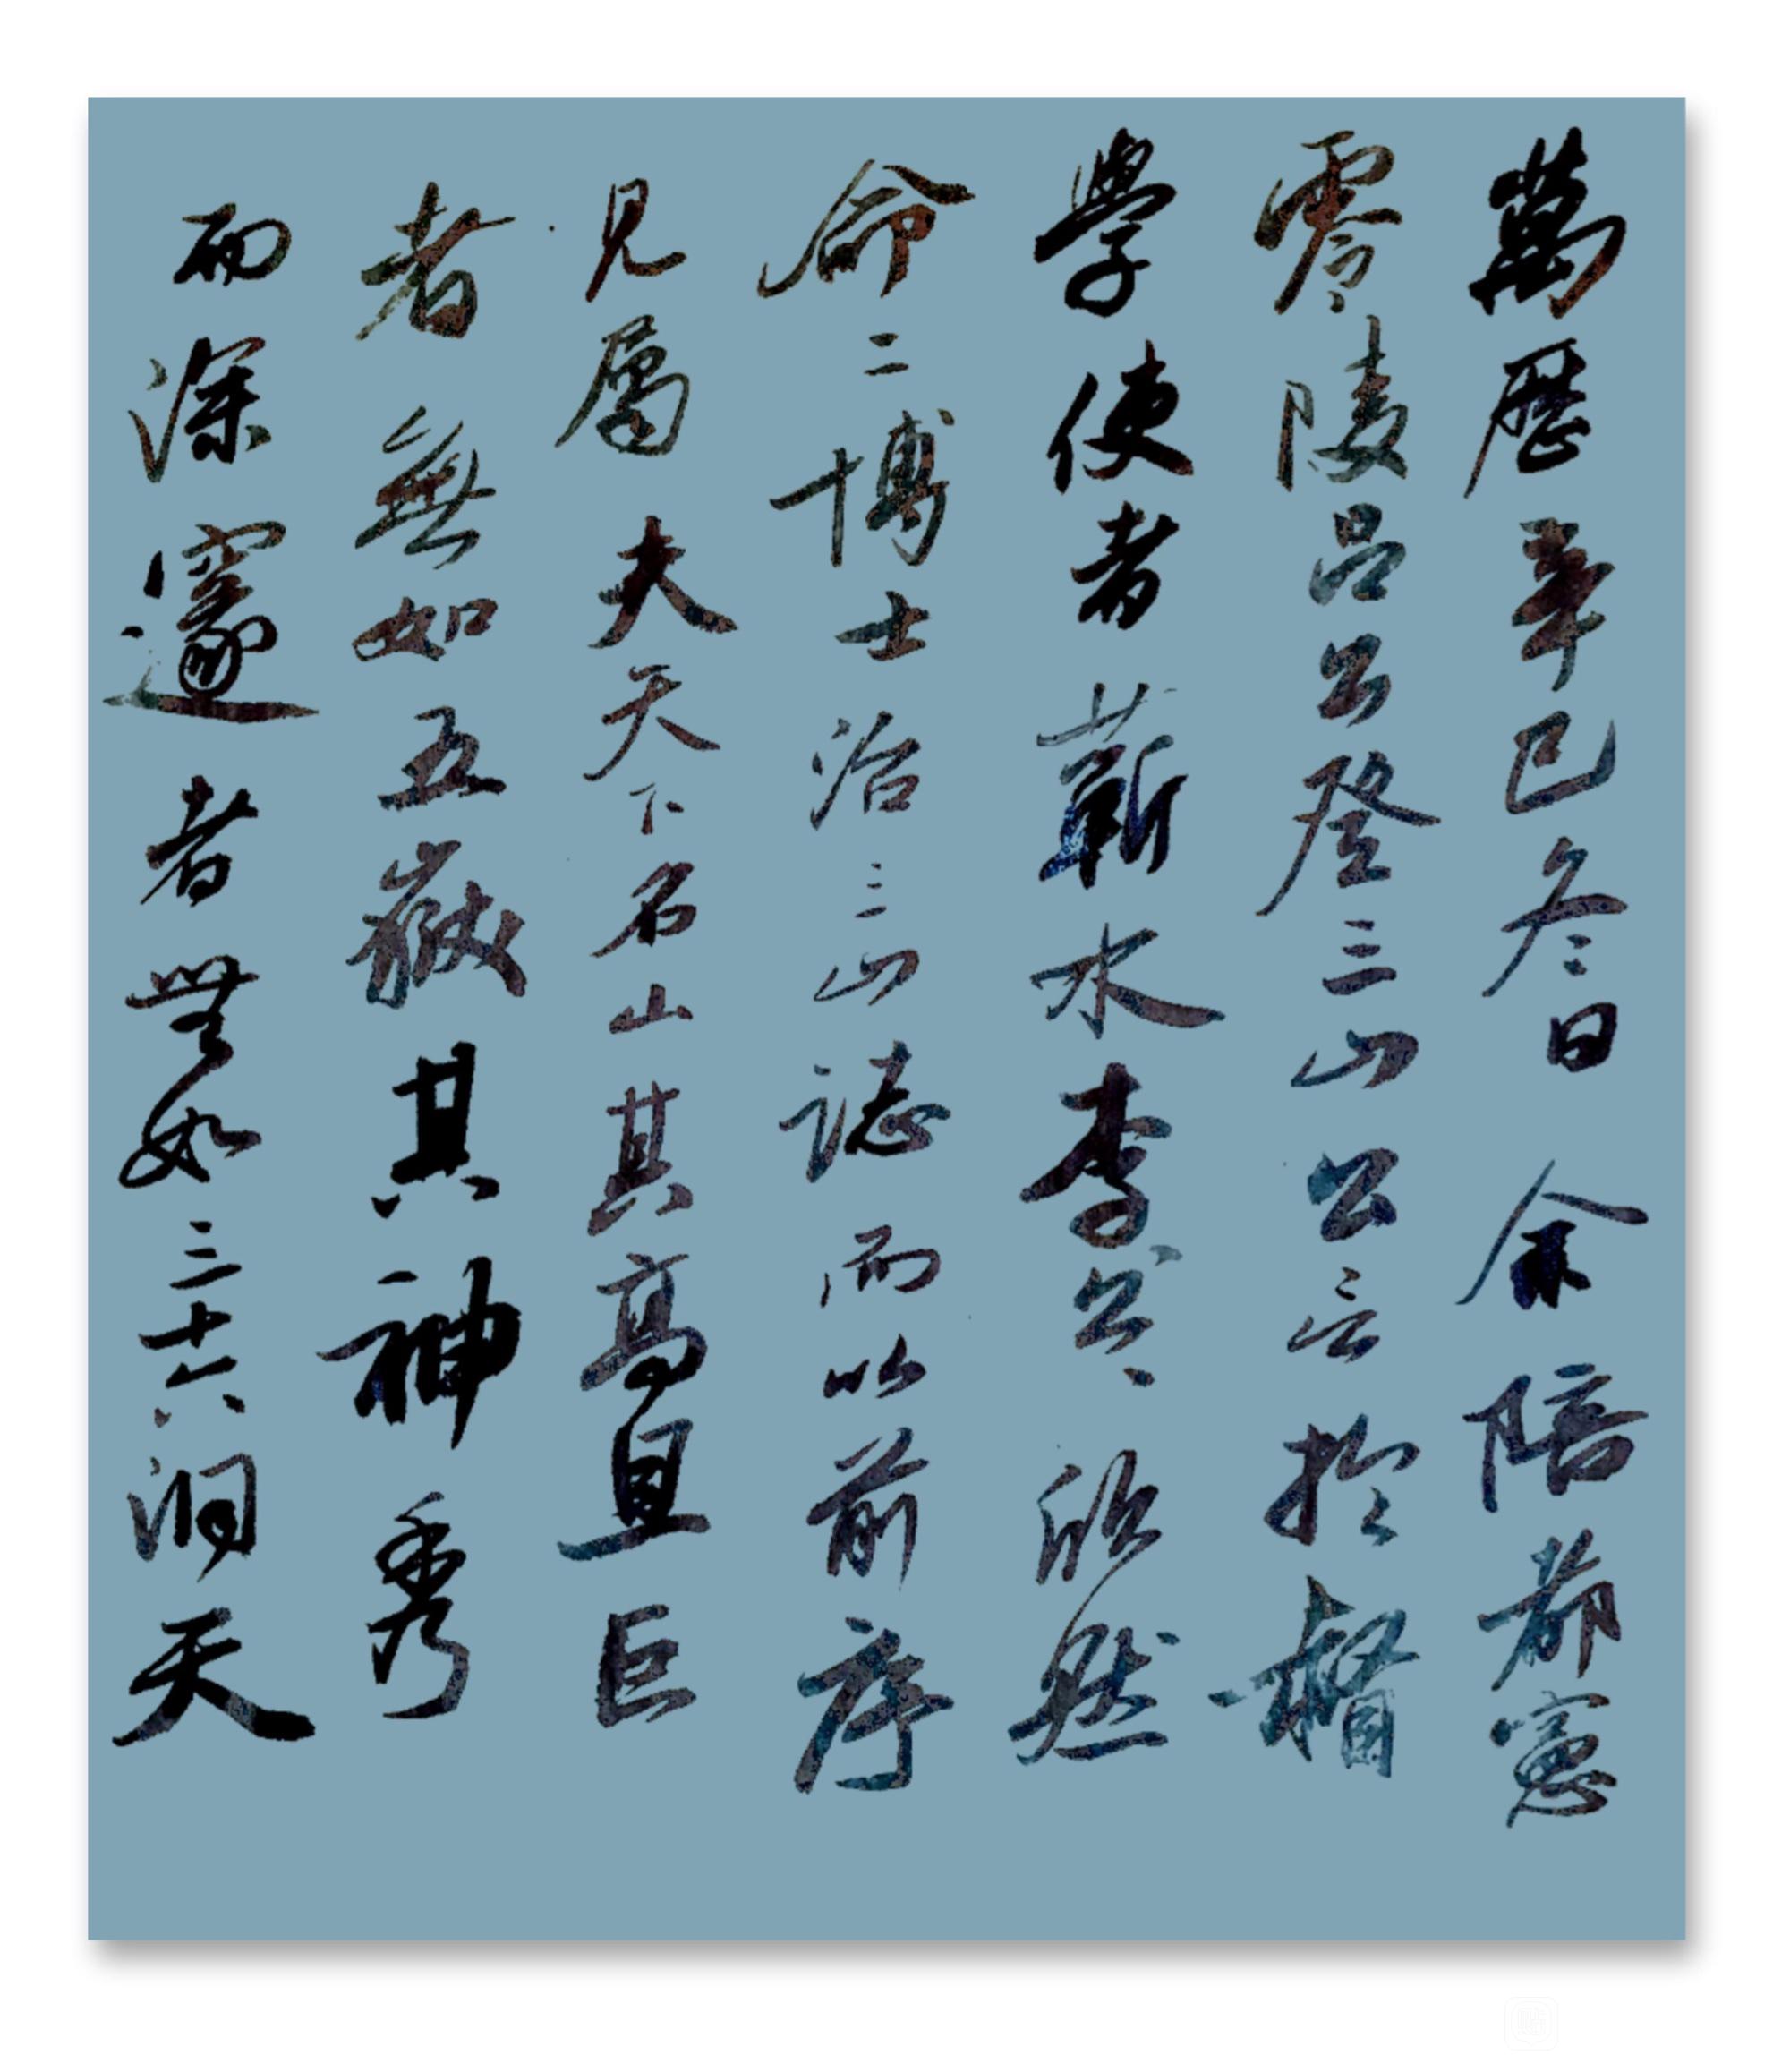 萬歷辛巳冬日余陪都憲
零陵呂公登三山公言於督
學使者蘄水李公公欣然
命二博士治三山誌而以前序
見屬夫天下名山其高且巨
者無如五嶽其神秀
而深邃者無如三十六洞天